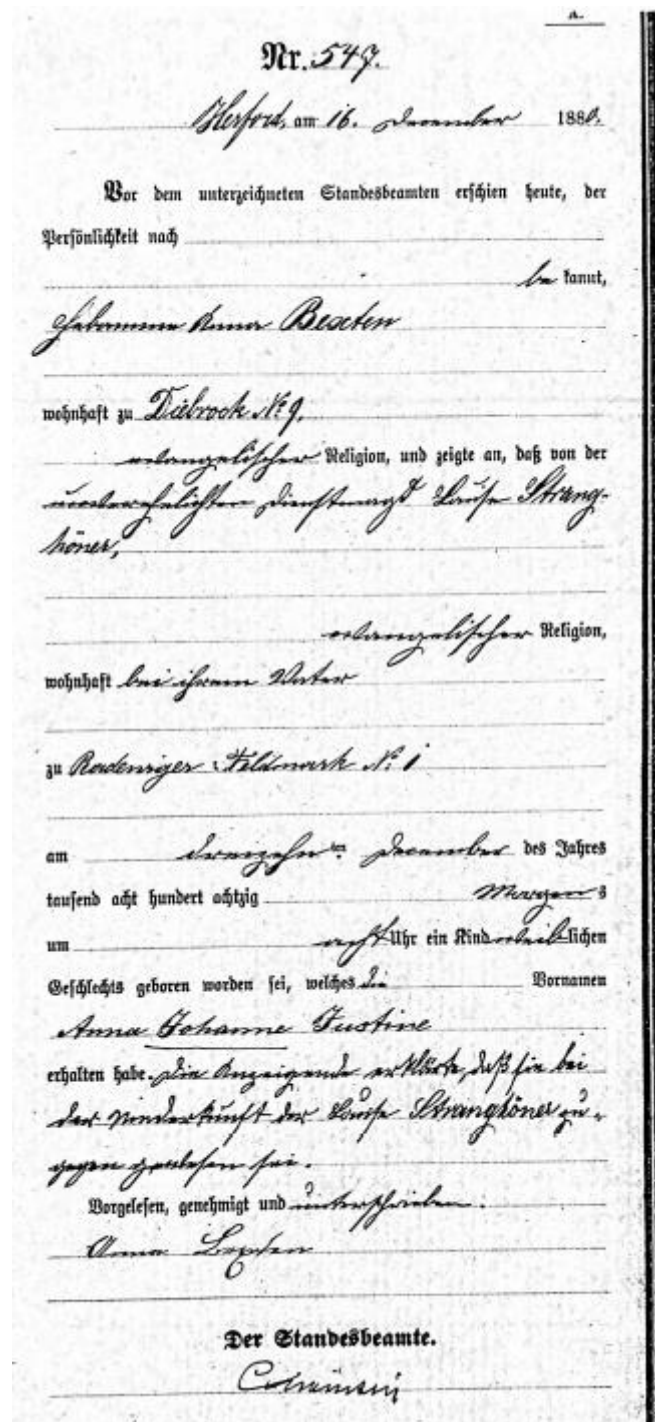 A.
Nr. 547.
Herford, am 16. December 1880.
Vor dem unterzeichneten Standesbeamten erschien heute, der
Persönlichkeit nach
be kannt,
Hebamme Anna Bexten
wohnhaft zu Diebrock No 9,
evangelischer Religion, und zeigte an, daß von der
unverehelichten Dienstmagd Louise Strang-
höner,
evangelischer Religion,
wohnhaft bei ihrem Vater
zu Radewiger Feldmark No 1
am dreizehnten December des Jahres
tausend acht hundert achtzig Morgens
um acht Uhr ein Kind weiblichen
Geschlechts geboren worden sei, welches die Vornamen
Anna Johanne Justine
erhalten habe. Die Anzeigende erklärte, daß sie bei
der Niederkunft der Louise Stranghöner zu-
gegen gewesen sei.
Vorgelesen, genehmigt und unterschrieben.
Anna Bexten
Der Standesbeamte.